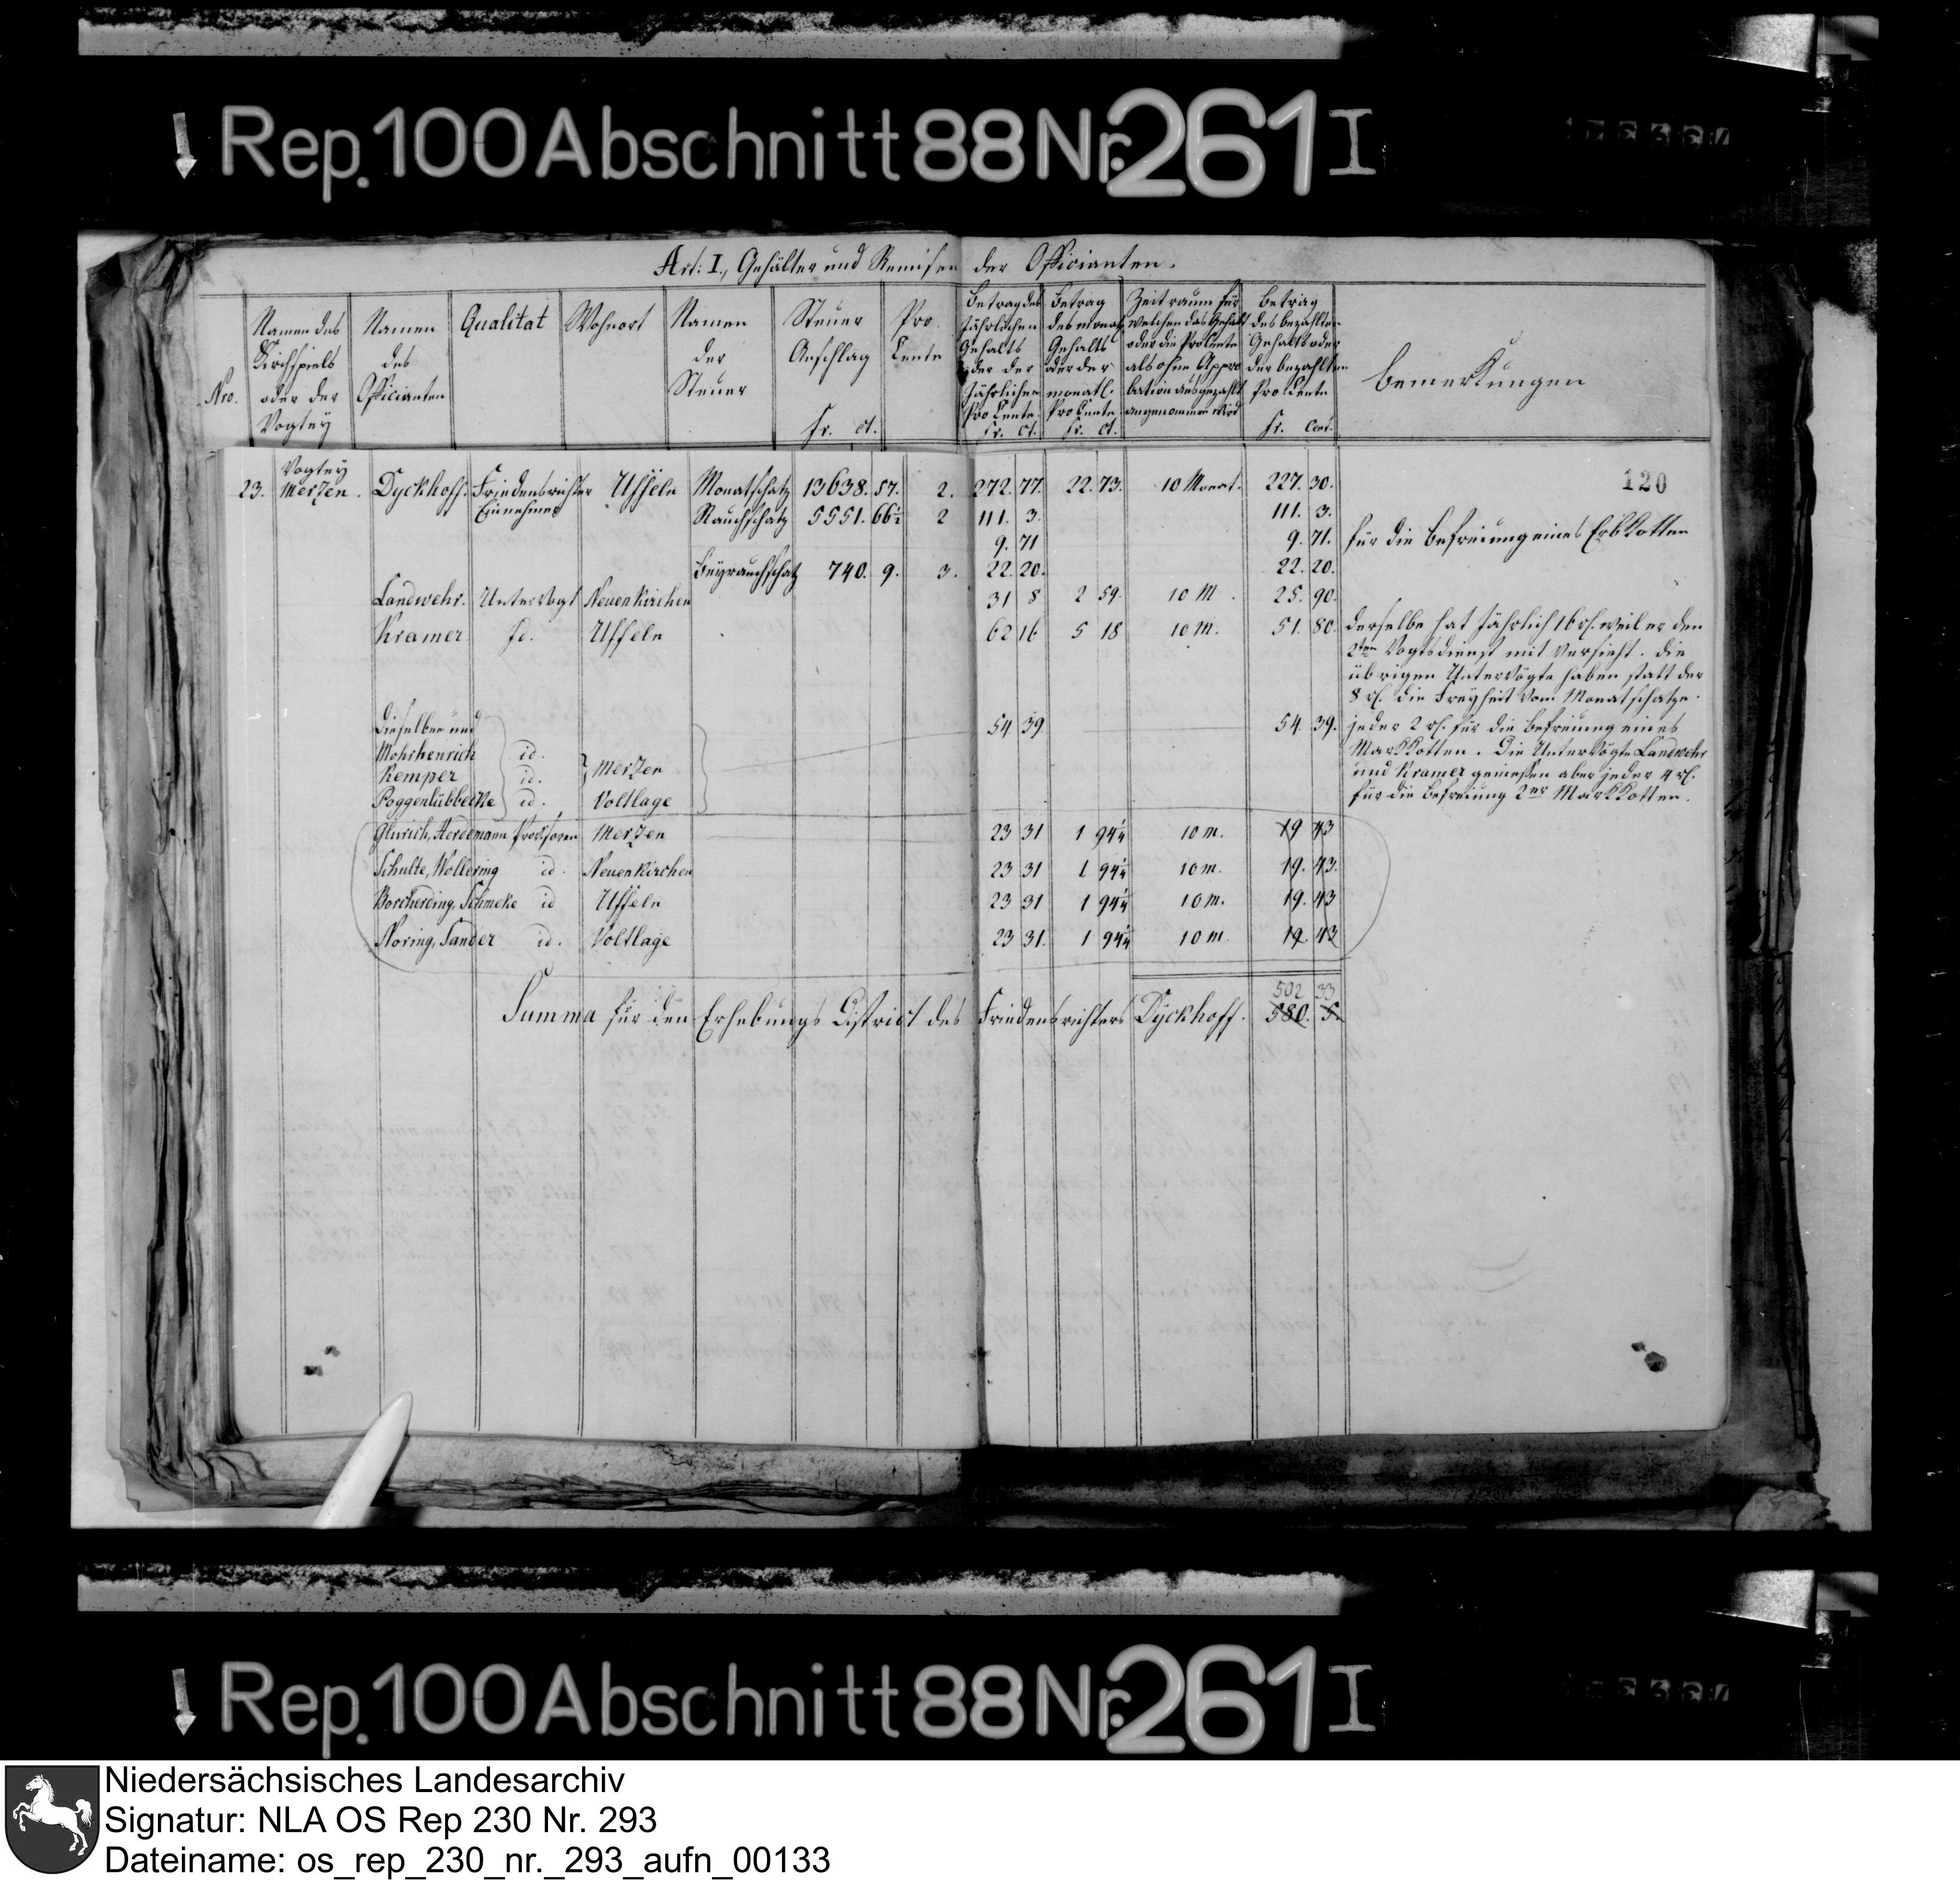 Rep. 100 Abschnitt 88 Nr. 261 I
Art: I., Gehälter und Remisen der Officianten.
Nro. | Namen des Kirchspiels oder der Vogtey | Namen des Officianten | Qualitat | Wohnort | Namen der Steuer | Steuer Anschlag fr. ct. | Pro Cente | Betrag des Jährlichen Gehalts oder der Jährlichen Pro Cente fr. ct. | Betrag des monatl. Gehalts oder der monatl. Pro Cente fr. ct. | Zeitraum für welchen das Gehalt oder die Pro Cente als ohne Approbation ausgezahlt angenommen wird | Betrag des bezahlten Gehalts oder der bezahlten Pro Cente fr. Cent. | Bemerkungen
120
23. Vogtey Merzen. Dyckhoff. Friedensrichter Einnehmer Uffeln Monatschatz 13638. 57. 2. 272. 77. 22. 73. 10 Monat. 227. 30.
Rauchschatz 5551. 66½ 2 111. 3. 111. 3.
9. 71 9. 71. für die Befreiung eines Erbkotten
Beyrauchschatz 740. 9. 3. 22. 20. 22. 20.
Landwehr. Untervogt Neuenkirchen 31 8 2 59. 10 M. 25. 90.
Kramer id. Uffeln 62 16 5 18 10 M. 51. 80. derselbe hat Jährlich 16 rl. weil er den
2ten Vogtsdienst mit versieht. die
übrigen Untervögte haben statt der
8 rl. die Freyheit vom Monatschatze.
Dieselben und 54 39 54. 39. jeder 2 rl. für die Befreiung eines
Mohrhenrich id. Markkotten. Die Untervögte Landwehr
Kemper id. Merzen und Kramer geniessen aber jeder 4 rl.
Poggenlübbecke id. Voltlage für die Befreiung 2er Markkotten.
Glurich, Aerdemann Provisoren Merzen 23 31 1 94¼ 10 m. 19 43
Schulte, Wollering id. Neuenkirchen 23 31 1 94¼ 10 m. 19. 43.
Borcherding, Schmeke id Uffeln 23 31 1 94¼ 10 m. 19. 43
Noring, Sander id. Voltlage 23 31. 1 94¼ 10 m. 19. 43
502 33
Summa für den Erhebungs District des Friedensrichters Dyckhoff. 580. 5.
Rep. 100 Abschnitt 88 Nr. 261 I
Niedersächsisches Landesarchiv
Signatur: NLA OS Rep 230 Nr. 293
Dateiname: os_rep_230_nr._293_aufn_00133